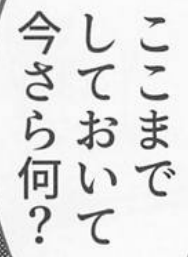 ここまで
しておいて
今さら何？